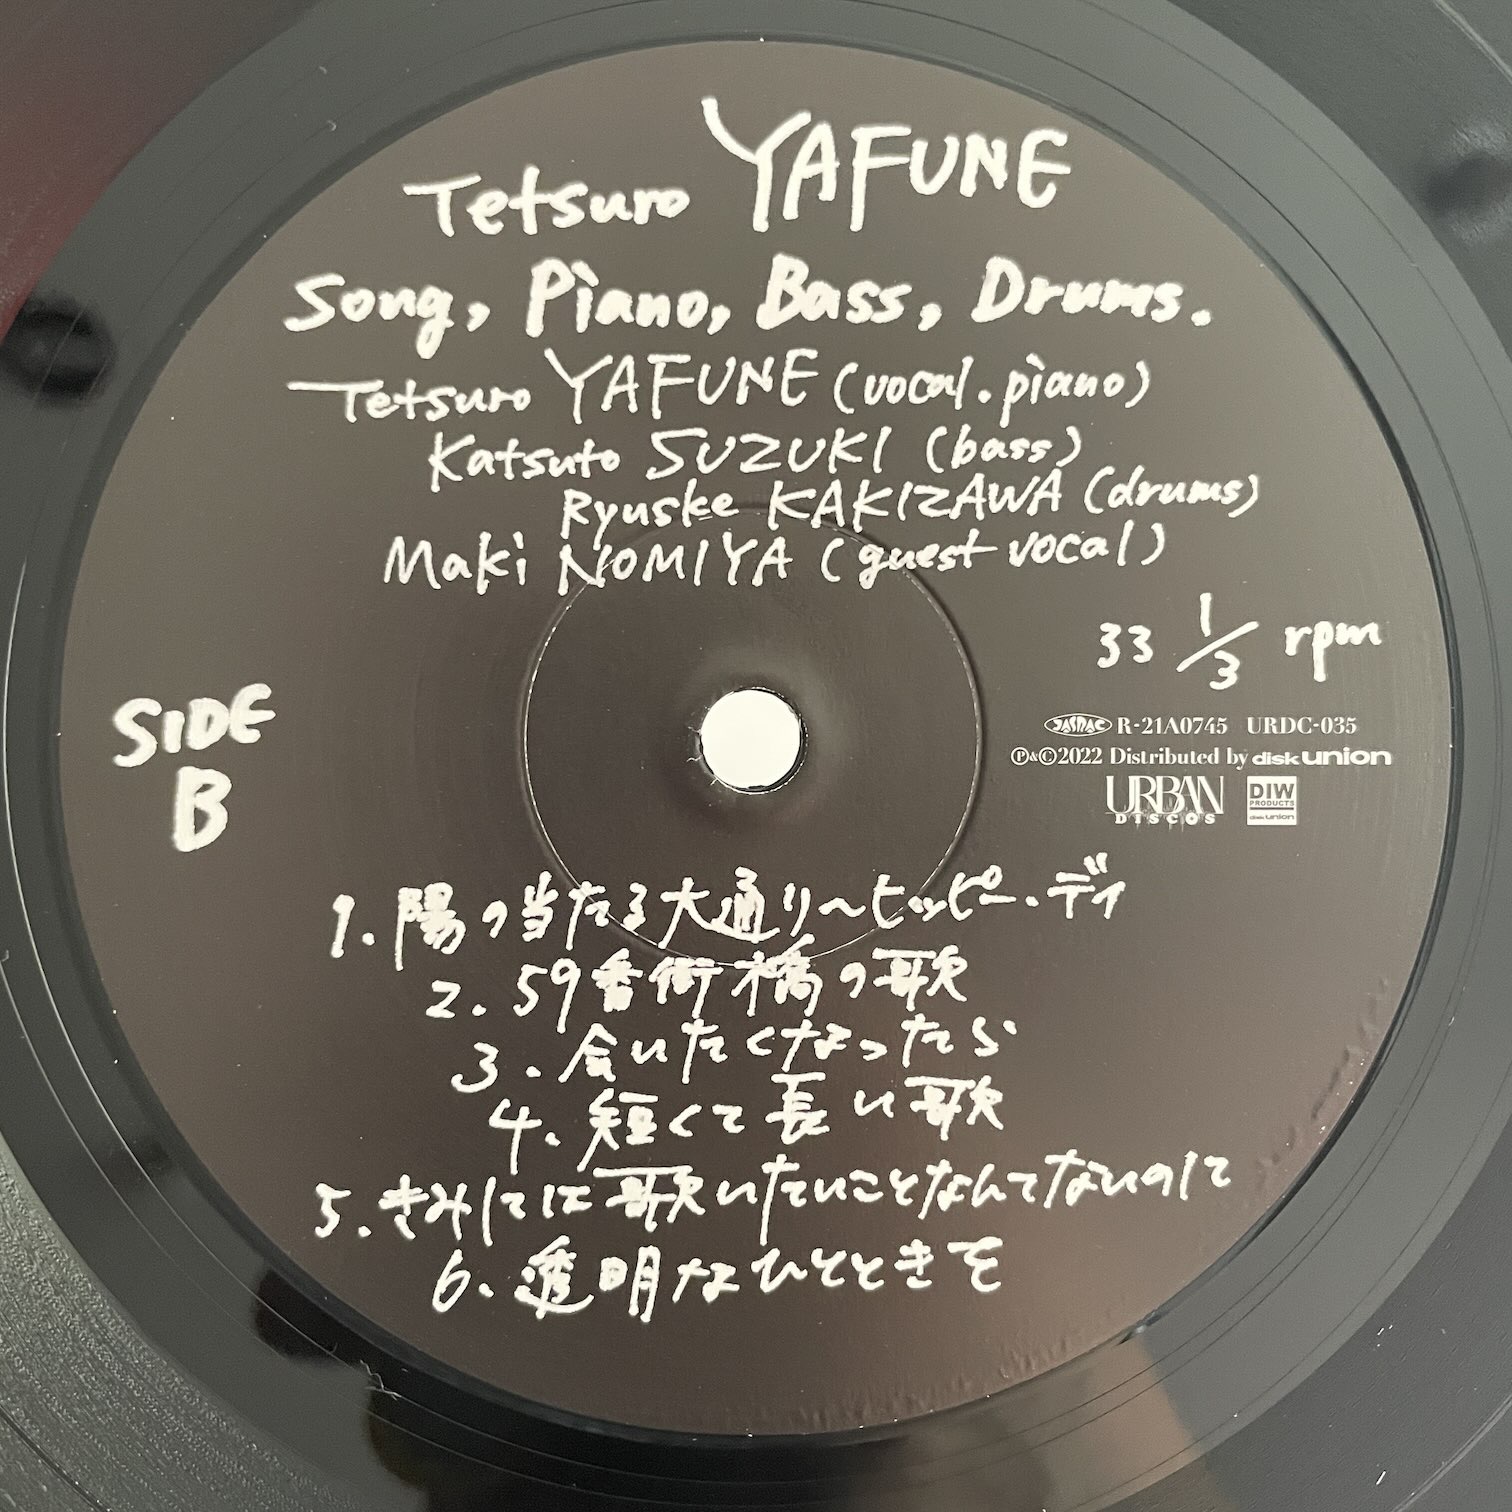 Tetsuro YAFUNE
Song, Piano, Bass, Drums.
Tetsuro YAFUNE (vocal.piano)
Katsuto SUZUKI (bass)
Ryuske KAKIZAWA (drums)
Maki NOMIYA (guest vocal)
33 1/3 rpm
SIDE
B
JASRAC R-21A0745 URDC-035
Ⓟ&©2022 Distributed by disk union
URBAN
DISCOS
DIW
PRODUCTS
disk union
1. 陽の当たる大通り〜ヒッピー・デイ
2. 59番街橋の歌
3. 会いたくなったら
4. 短くて長い歌
5. きみしてに歌いたいことなんてないのに
6. 透明なひとときを